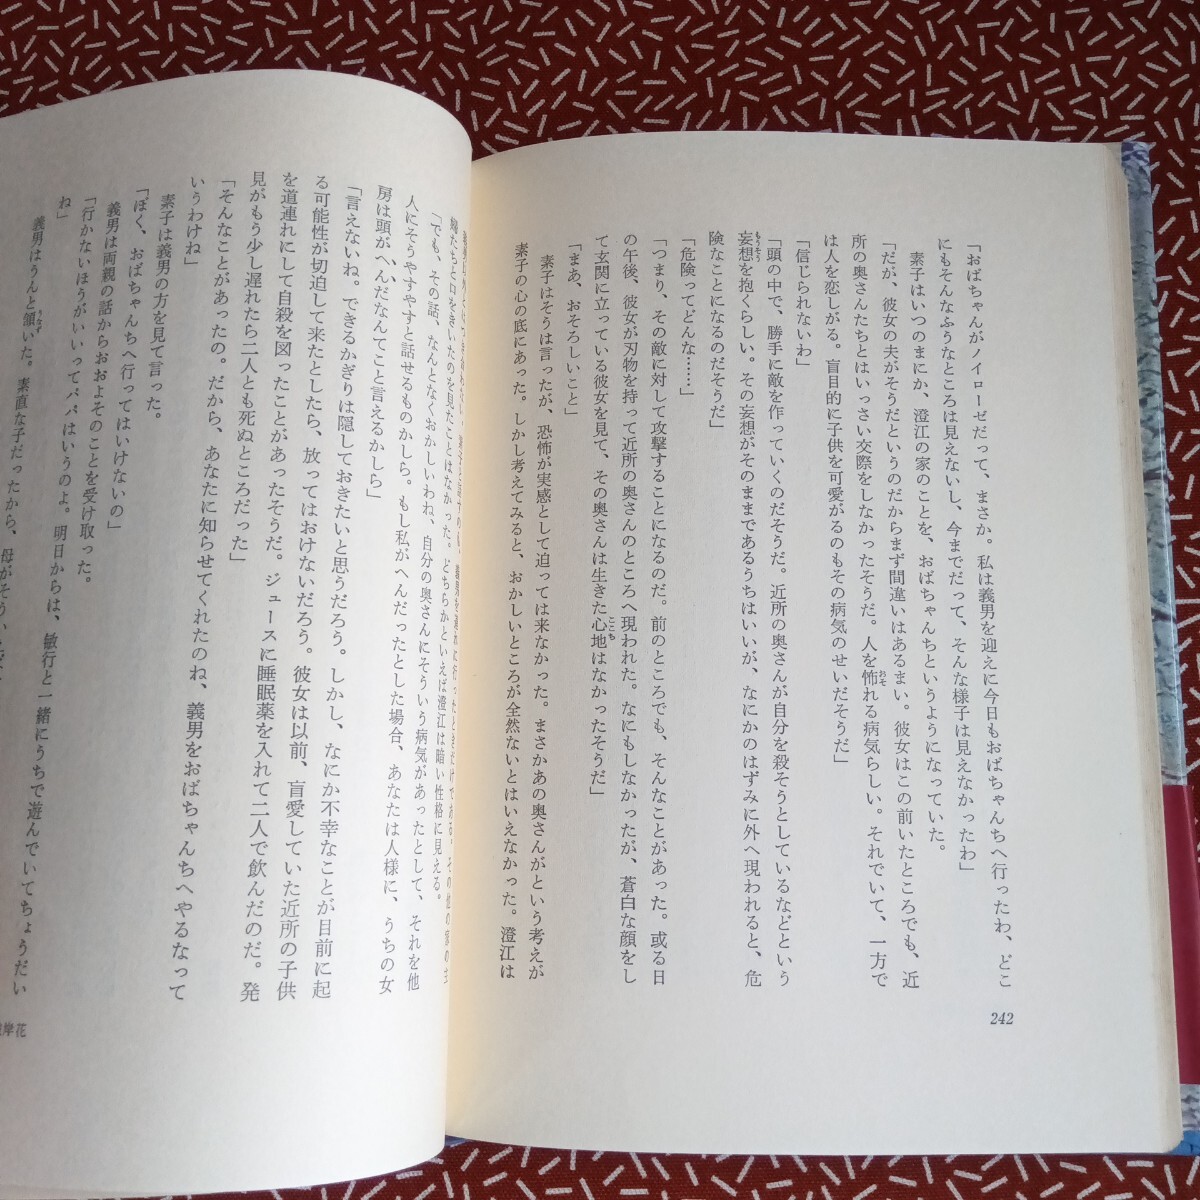 「おばちゃんがノイローゼだって、まさか。私は義男を迎えに今日もおばちゃんちへ行ったわ、どこ
にもそんなふうなところは見えないし、今までだって、そんな様子は見えなかったわ」
素子はいつのまにか、澄江の家のことを、おばちゃんちというようになっていた。
「だが、彼女の夫がそうだというのだからまず間違いはあるまい。彼女はこの前いたところでも、近
所の奥さんたちとはいっさい交際をしなかったそうだ。人を怖れる病気らしい。それでいて、一方で
は人を恋しがる。盲目的に子供を可愛がるのもその病気のせいだそうだ」
「信じられないわ」
「頭の中で、勝手に敵を作っていくのだそうだ。近所の奥さんが自分を殺そうとしているなどという
妄想を抱くらしい。その妄想がそのままであるうちはいいが、なにかのはずみに外へ現われると、危
険なことになるのだそうだ」
「危険ってどんな……」
「つまり、その敵に対して攻撃することになるのだ。前のところでも、そんなことがあった。或る日
の午後、彼女が刃物を持って近所の奥さんのところへ現われた。なにもしなかったが、蒼白な顔をし
て玄関に立っている彼女を見て、その奥さんは生きた心地はなかったそうだ」
「まあ、おそろしいこと」
素子はそうは言ったが、恐怖が実感として迫っては来なかった。まさかあの奥さんがという考えが
素子の心の底にあった。しかし考えてみると、おかしいところが全然ないとはいえなかった。澄江は
242
婦たちと口をきいたのを見たことはなかった。どちらかといえば澄江は暗い性格に見える。
「でも、その話、なんとなくおかしいわね、自分の奥さんにそういう病気があったとして、それを他
人にそうやすやすと話せるものかしら。もし私がへんだったとした場合、あなたは人様に、うちの女
房は頭がへんだなんてこと言えるかしら」
「言えないね。できるかぎりは隠しておきたいと思うだろう。しかし、なにか不幸なことが目前に起
る可能性が切迫して来たとしたら、放ってはおけないだろう。彼女は以前、盲愛していた近所の子供
を道連れにして自殺を図ったことがあったそうだ。ジュースに睡眠薬を入れて二人で飲んだのだ。発
見がもう少し遅れたら二人とも死ぬところだった」
「そんなことがあったの。だから、あなたに知らせてくれたのね、義男をおばちゃんちへやるなって
いうわけね」
素子は義男の方を見て言った。
「ぼく、おばちゃんちへ行ってはいけないの」
義男は両親の話からおおよそのことを受け取った。
「行かないほうがいいってパパはいうのよ。明日からは、敏行と一緒にうちで遊んでいてちょうだい
ね」
義男はうんと頷いた。素直な子だったから、母がそう
岸花